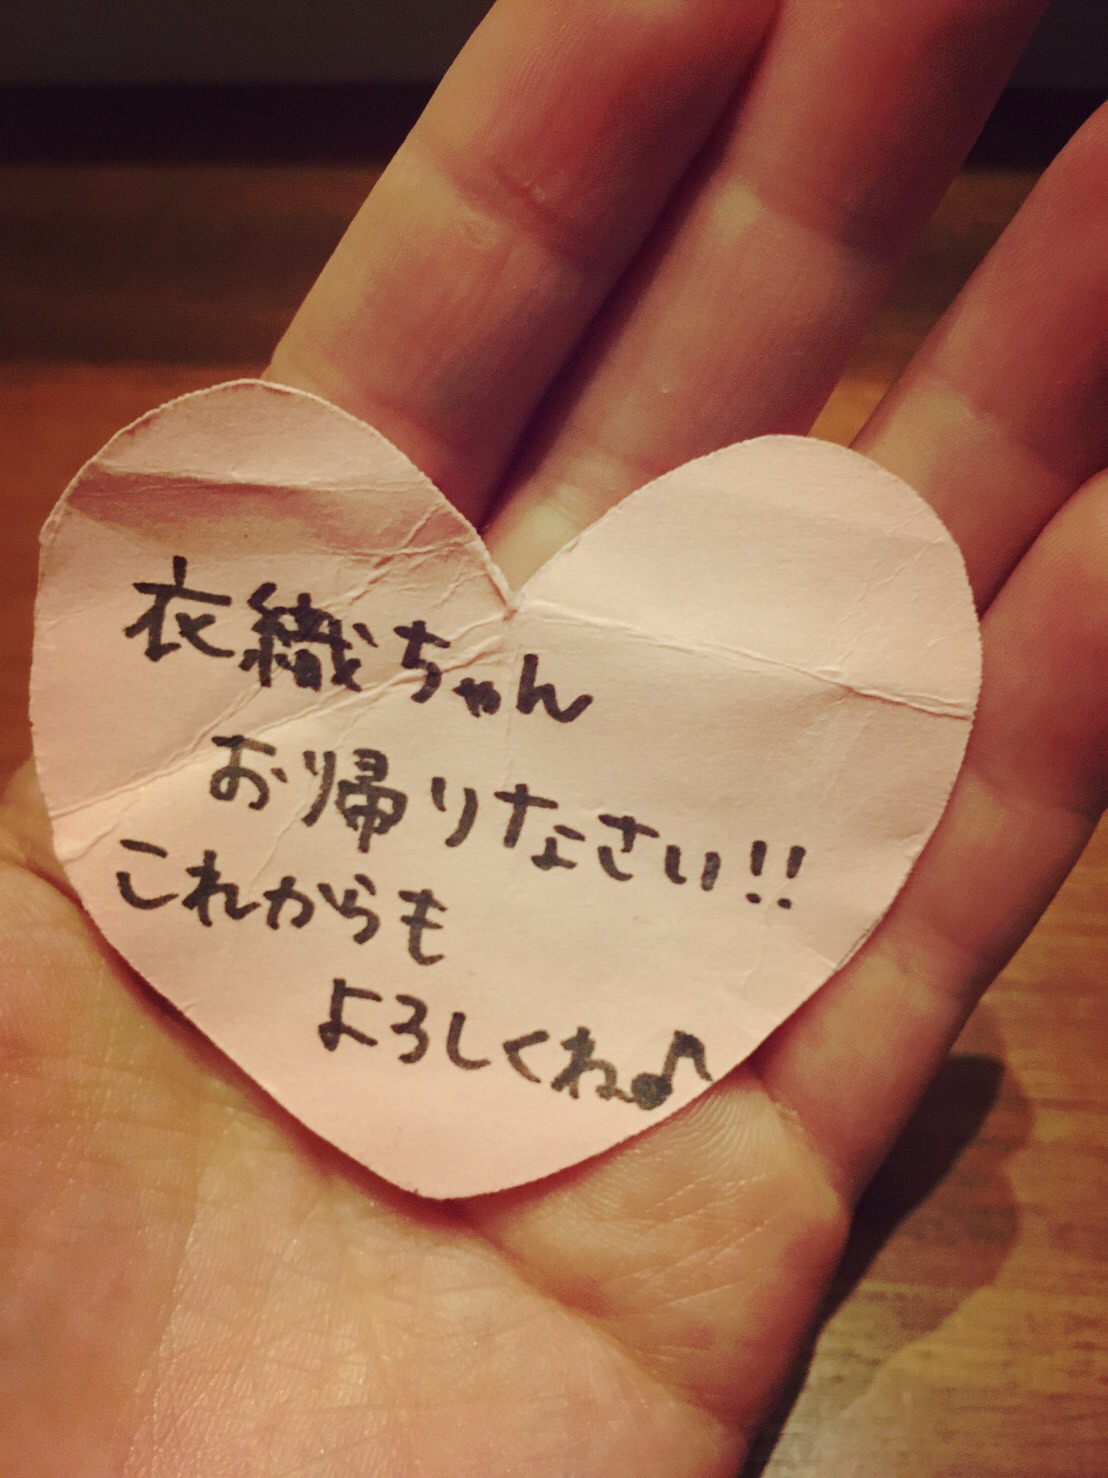 衣織ちゃん
お帰りなさい!!
これからも
よろしくね♪